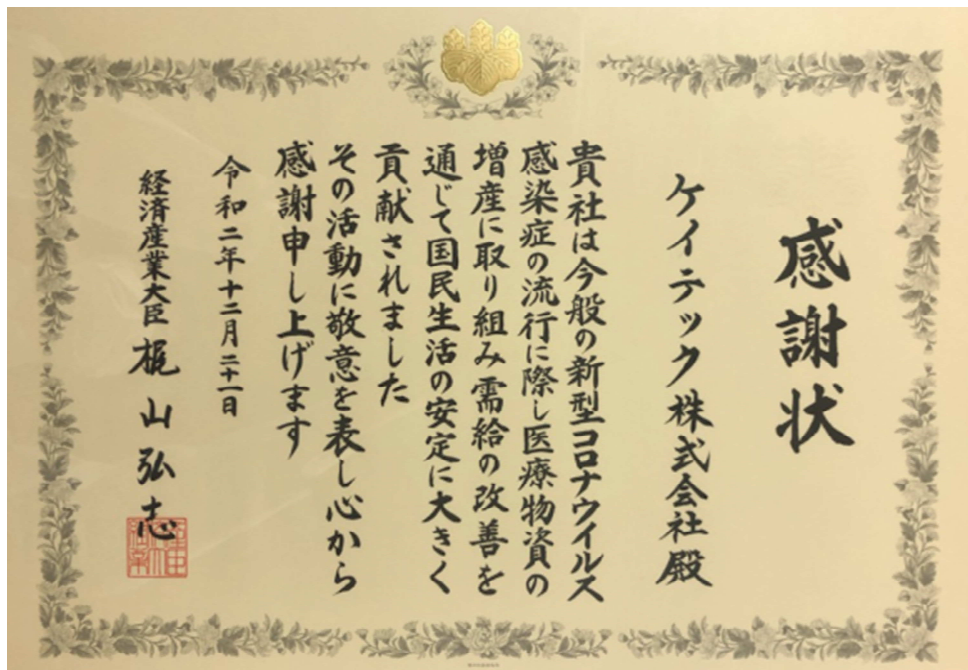 感謝状
ケイテック株式会社殿
貴社は今般の新型コロナウイルス
感染症の流行に際し医療物資の
増産に取り組み需給の改善を
通じて国民生活の安定に大きく
貢献されました
その活動に敬意を表し心から
感謝申し上げます
令和二年十二月二十一日
経済産業大臣 梶山弘志